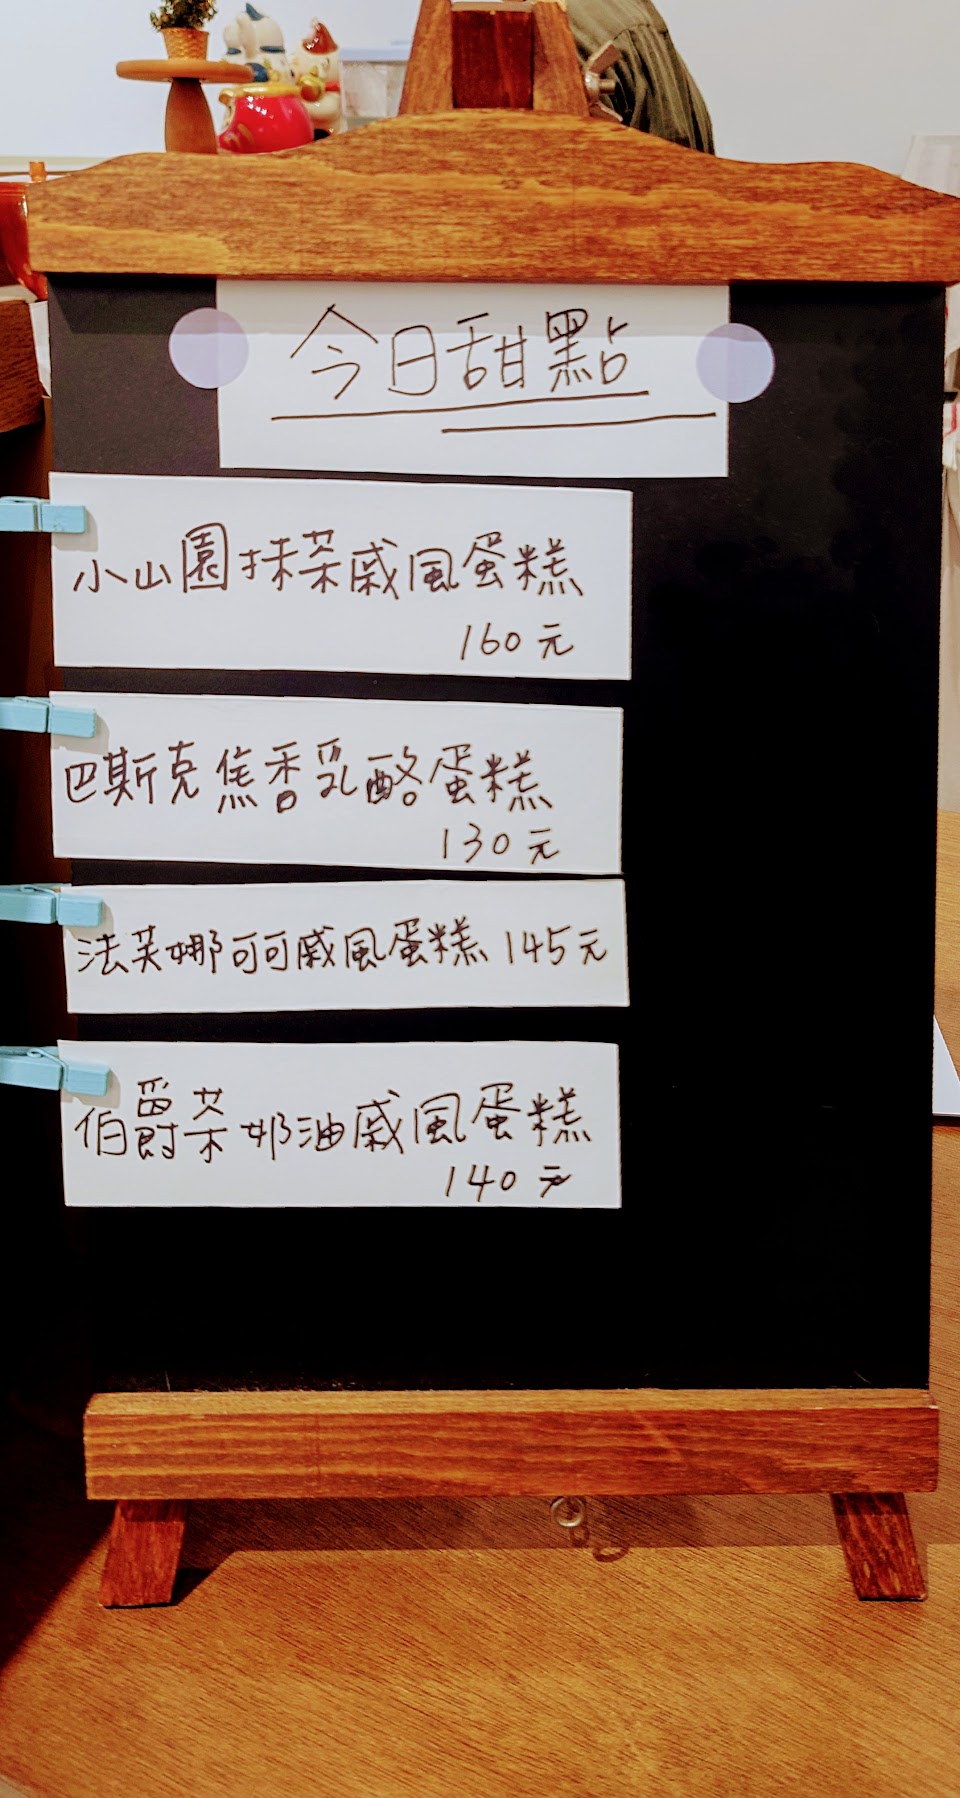 今日甜點
小山園抹茶戚風蛋糕
160元
巴斯克焦香乳酪蛋糕
130元
法芙娜可可戚風蛋糕 145元
伯爵茶奶油戚風蛋糕
140元